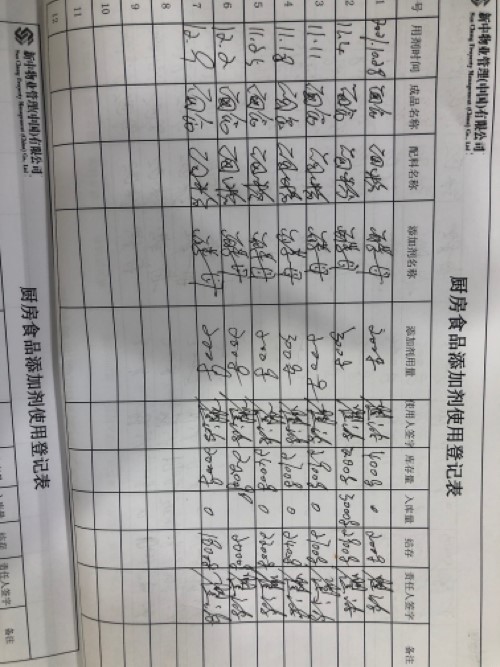 新中物业管理(中国)有限公司
Sun Chung Property Management (China) Co., Ltd.
厨房食品添加剂使用登记表
号 用剂时间 成品名称 配料名称 添加剂名称 添加剂用量 使用人签字 库存量 入库量 结存 责任人签字 备注
1 2021.10.28 面包 面粉 酵母 200g 400g 0 200g
2 11.4 面包 面粉 酵母 300g 200g 3000g 2900g
3 11.11 面包 面粉 酵母 200g 2900g 0 2700g
4 11.18 面包 面粉 酵母 300g 2700g 0 2400g
5 11.25 面包 面粉 酵母 200g 2400g 0 2200g
6 12.2 面包 面粉 酵母 200g 2200g 0 2000g
7 12.9 面包 面粉 酵母 200g 2000g 0 1800g
8
9
10
11
12
新中物业管理(中国)有限公司
Sun Chung Property Management (China) Co., Ltd.
厨房食品添加剂使用登记表
结存 责任人签字 备注